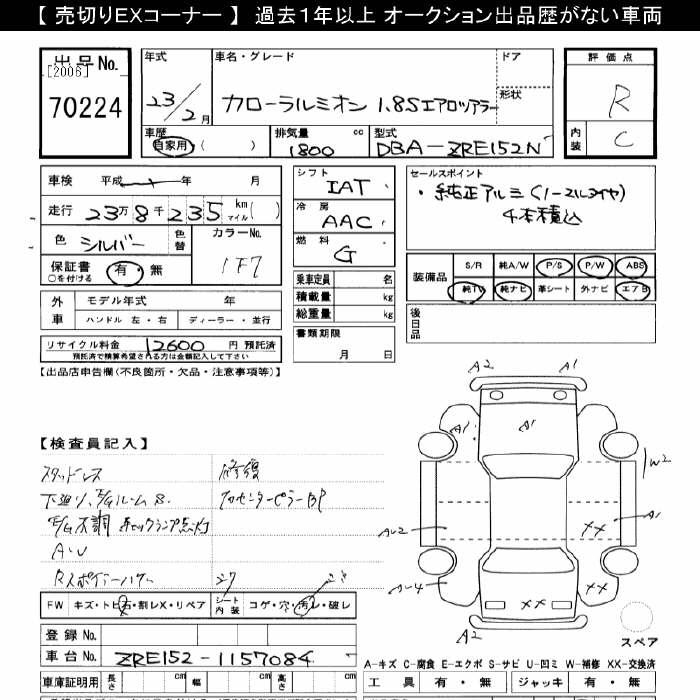 【 売切りEXコーナー 】 過去1年以上 オークション出品歴がない車両
出品No.
[2006]
70224
年式
23/2月
車名・グレード
カローラルミオン 1.8Sエアロツアラー
ドア
形状
評価点
R
内装
C
車歴
自家用 ( )
排気量 cc
1800
型式
DBA-ZRE152N
車検 平成 年 月
走行 23万8千235 km マイル ( )
色 シルバー 色替
カラーNo.
1F7
保証書 有・無
○を付ける
シフト
IAT
冷房
AAC
燃料
G
セールスポイント
・純正アルミ(ノーマルタイヤ)
4本積込
乗車定員 名
積載量 kg
総重量 kg
装備品
S/R 純A/W P/S P/W ABS
純TV 純ナビ 革シート 外ナビ エアB
外車
モデル年式 年
ハンドル 左・右 ディーラー・並行
書類期限
月 日
後日品
リサイクル料金 12600 円 預託済
預託済で積算希望される方は金額記入して下さい
【出品店申告欄(不良箇所・欠品・注意事項等)】
A2
A1
A1
A1
W2
【検査員記入】
スタッドレス 修復
下廻り、E/Gルーム S.
E/G不調 チェックランプ点灯
A・U
AU2
××
A1
U4
××
××
A2
FW キズ・トビ石・割レX・リペア
シート内装 コゲ・穴・汚レ・破レ
登録No.
スペア
車台No. ZRE152-1157084
A-キズ C-腐食 E-エクボ S-サビ U-凹ミ W-補修 XX-交換済
車庫証明用 長さ cm 幅 cm 高さ cm
工具 有・無 ジャッキ 有・無